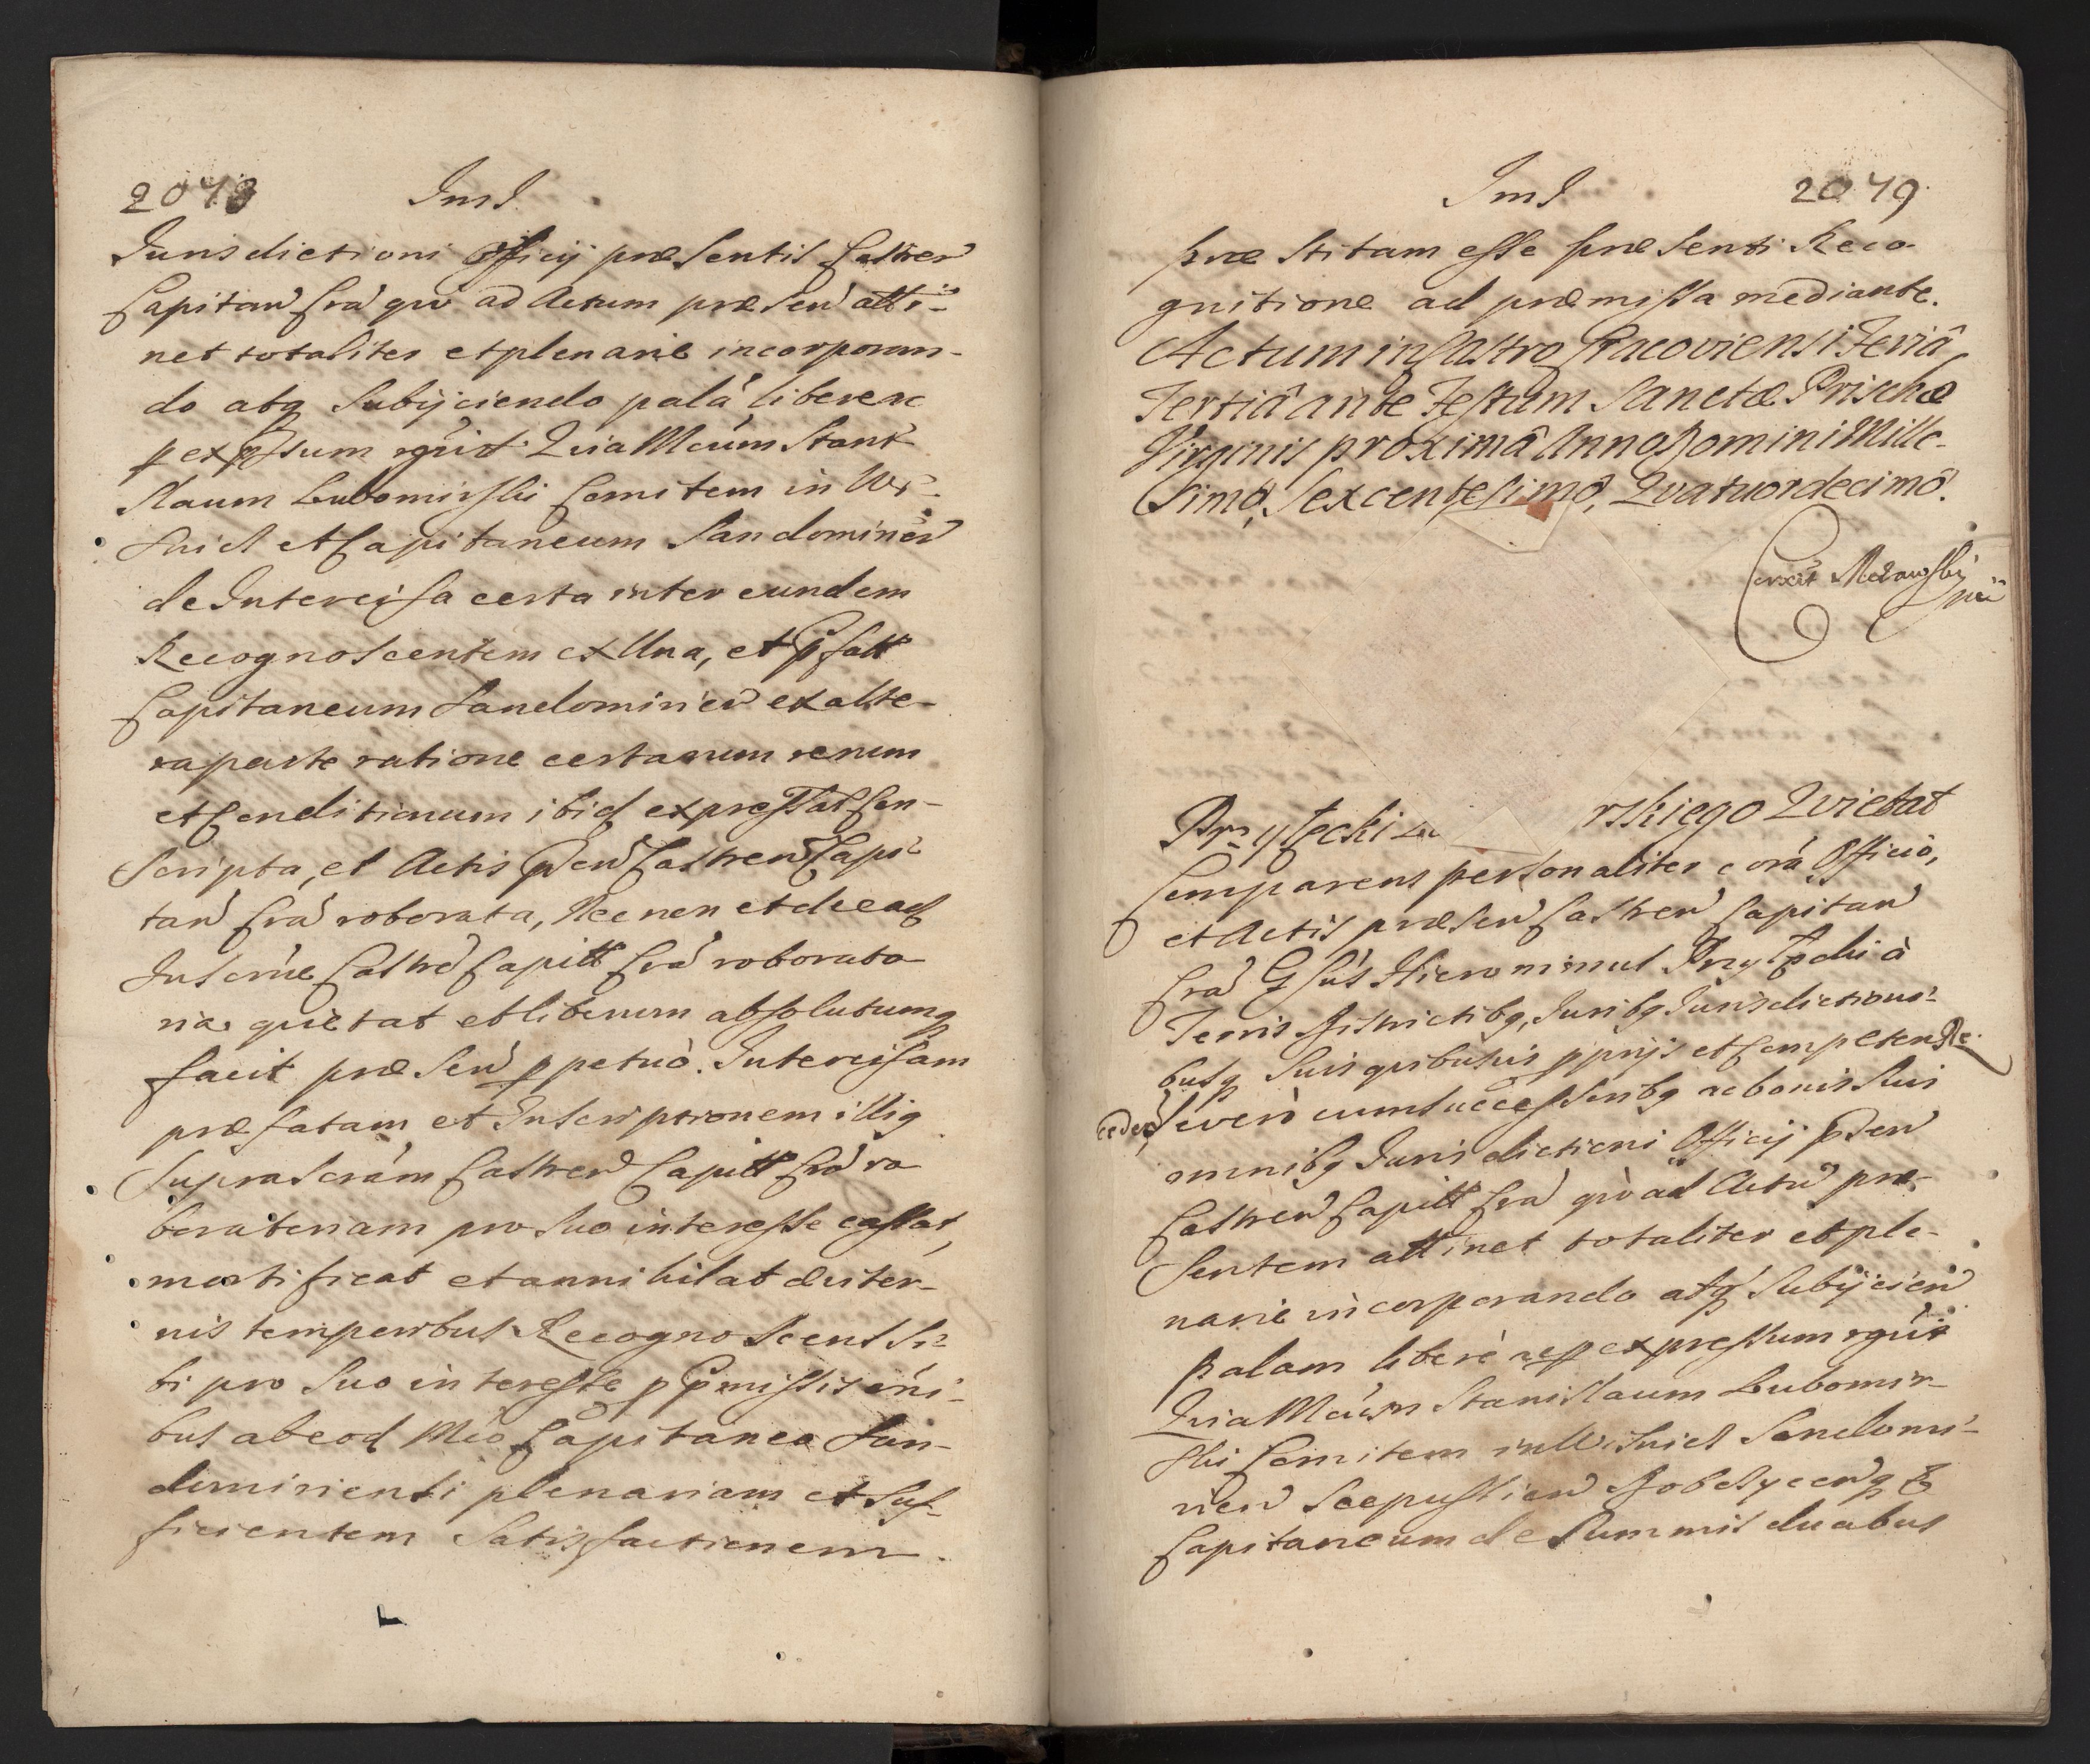 2078 Jms
Jurisdictioni Officij præsentis Castren
Capitan Cra quo ad Actum præsen atti-
net totaliter et plenarie incorporan-
do atq Subijciendo palá libere ac
p expssum rgúit Quia Mcúm Stani-
slaum Lubomirski Comitem in Wi-
snicz et Capitaneum Sandomirien
de Intercisa certa inter eundem
Recognoscentem ex Una, et pfatt
Capitaneum Sandomirien ex alte-
ra parte ratione certarum rerum
et Conditionum ibid expressat Con-
scripta, et Actis pden Castren Capi-
tan Cra roborata, Nec non et de ead
Inscrñe Castre Capitt Cra roborato
ria quietat et liberum absolutumq
facit præsen ppetuò. Intercisam
præfatam et Inscriptionem illiq
Suprascrám Castren Capitt Cra ro
boratoriam pro Suo interesse cassat,
mortificat et annihilat æviter-
nis temporibus Recognoscens Si-
bi pro Suo interesse p pmissis óni-
bus ab eod Mco Capitaneo San-
domiriensi plenariam et Suf-
ficientem Satisfactionem
Jms 2079
præstitam esse præsenti Reco-
gnitione ad præmissa mediante.
Actum in Castro Cracoviensi Feriâ
Tertiâ ante Festum Sanctæ Priscæ
Virginis proximâ Anno Domini Mille-
simô, Sexcentesimô, Quatuordecimô.
Przyłęcki Lu rskiego Quietat
Comparens personaliter corá Officiò,
et Actis præsen Castren Capitan
Cra Gsús Hieronimus Przyłęcki à
Terris districtibq, Juribq Jurisdictioni-
busq Suis quibusvis pprijs et Competen Re-
ceden Se verò cum Successoribq ac bonis Suis
omnibq Jurisdictioni Officij pden
Castren Capitt Cra quò ad Actú præ-
sentem attinet totaliter et ple-
narie incorporando atq Subijcien
palam liberè ac p expressum rgúit
Quia Mcúm Stanislaum Lubomir-
ski Comitem in Wisnicz Sandomi-
rien Scepusien Dobczycenq &
Capitaneum de Summis duabus